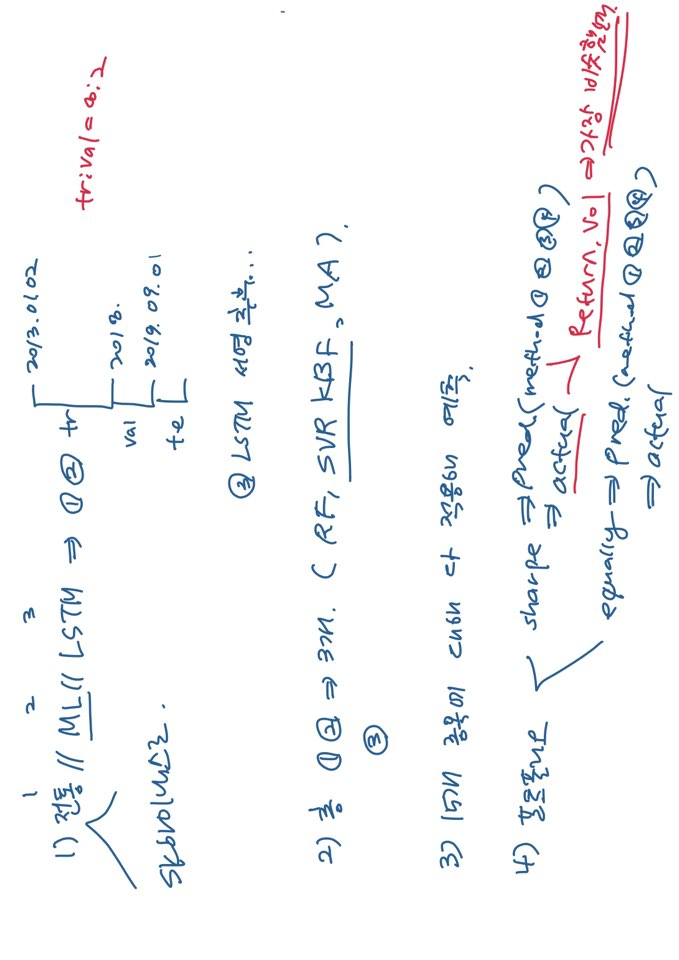 1 2 3
1) 전통 // ML // LSTM ⇒ ① ② tr 2013.01.02
val 2018.
te 2019.09.01
tr:val = 8:2
SK하이닉스로.
③ LSTM 서영
2) 총 ① ② ⇒ 3개. (RF, SVR RBF, MA).
③
3) 15개 종목에 대해 다 적용해 예측.
4) 포트폴리오
sharpe ⇒ pred.(method ① ② ③ ④)
⇒ actual
Return, Vol ⇒ 가장 비슷한
equally ⇒ pred.(method ① ② ③ ④)
⇒ actual